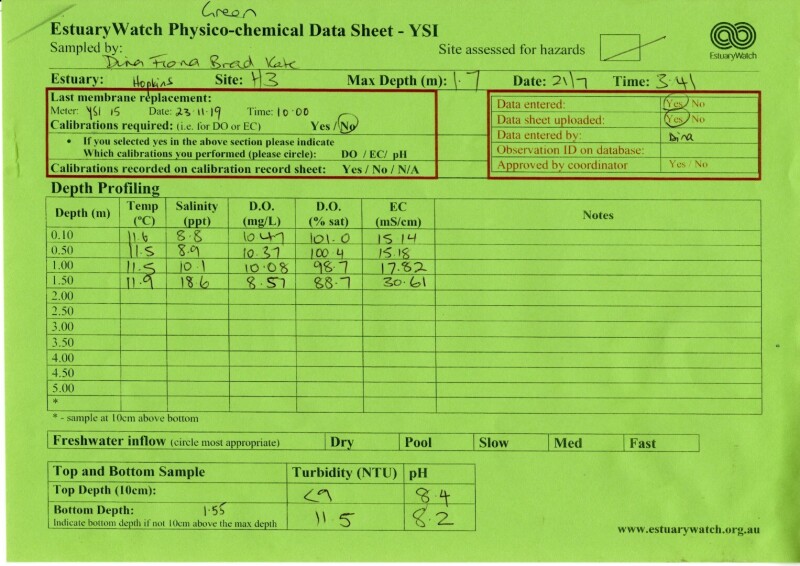 Green
EstuaryWatch Physico-chemical Data Sheet - YSI
Sampled by: Dina Fiona Brad Kate
Site assessed for hazards
EstuaryWatch
Estuary: Hopkins Site: H3 Max Depth (m): 1.7 Date: 21/7 Time: 3.41
Last membrane replacement:
Meter: YSI 15 Date: 23.11.19 Time: 10:00
Calibrations required: (i.e. for DO or EC) Yes / No
• If you selected yes in the above section please indicate
Which calibrations you performed (please circle): DO / EC/ pH
Calibrations recorded on calibration record sheet: Yes / No / N/A
Data entered: Yes / No
Data sheet uploaded: Yes / No
Data entered by: Dina
Observation ID on database:
Approved by coordinator Yes / No
Depth Profiling
Depth (m) Temp (°C) Salinity (ppt) D.O. (mg/L) D.O. (% sat) EC (mS/cm) Notes
0.10 11.6 8.8 10.47 101.0 15.14
0.50 11.5 8.9 10.37 100.4 15.18
1.00 11.5 10.1 10.08 98.7 17.82
1.50 11.9 18.6 8.57 88.7 30.61
2.00
2.50
3.00
3.50
4.00
4.50
5.00
*
* - sample at 10cm above bottom
Freshwater inflow (circle most appropriate) Dry Pool Slow Med Fast
Top and Bottom Sample Turbidity (NTU) pH
Top Depth (10cm): <9 8.4
Bottom Depth: 1.55 11.5 8.2
Indicate bottom depth if not 10cm above the max depth
www.estuarywatch.org.au